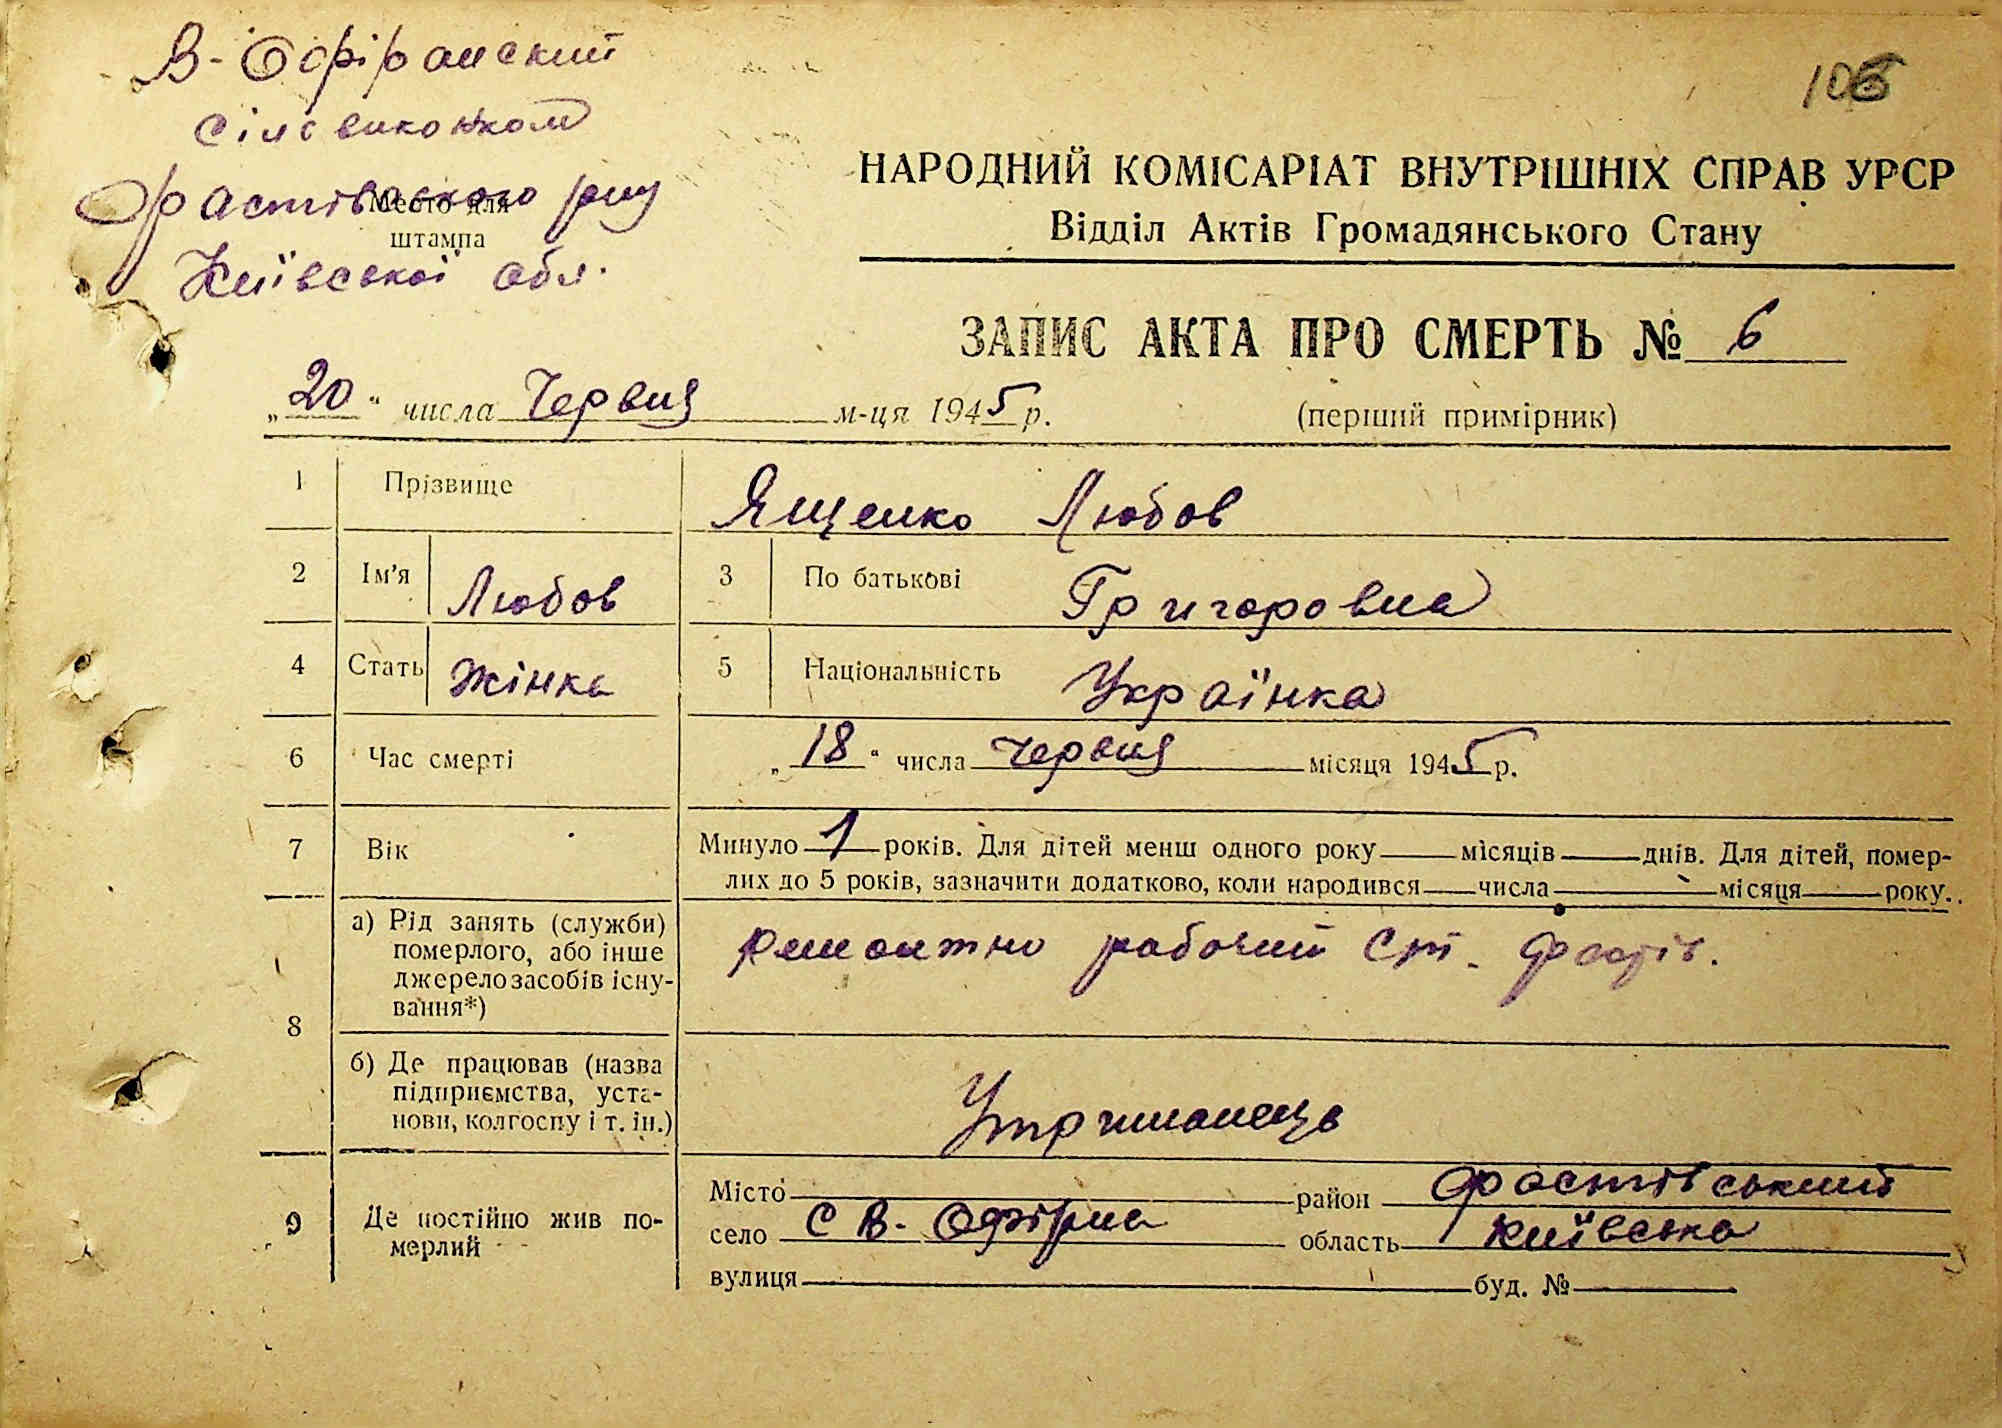 В-Офірнський
сільвиконком
Фастівського р-ну
Место для
штампа
Київської обл.
106
НАРОДНИЙ КОМІСАРІАТ ВНУТРІШНІХ СПРАВ УРСР
Відділ Актів Громадянського Стану
ЗАПИС АКТА ПРО СМЕРТЬ № 6
„20“ числа Червня м-ця 1945 р.
(перший примірник)
1 Прізвище Ященко Любов
2 Ім'я Любов 3 По батькові Григоровна
4 Стать Жінка 5 Національність Українка
6 Час смерті „18“ числа червня місяця 1945 р.
7 Вік Минуло 1 років. Для дітей менш одного року місяців днів. Для дітей, помер-
лих до 5 років, зазначити додатково, коли народився числа місяця року.
8 а) Рід занять (служби)
померлого, або інше
джерело засобів існу-
вання*)
ремонтно рабочий ст. Фастів.
б) Де працював (назва
підприємства, уста-
нови, колгоспу і т. ін.)
Утриманець
9 Де постійно жив по-
мерлий
Місто район Фастівський
село С В-Офірна область Київська
вулиця буд. №